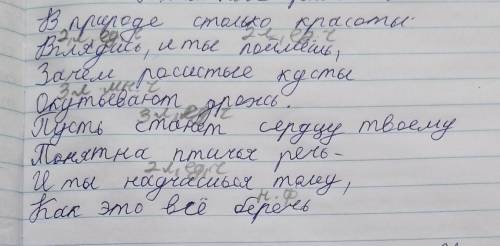 В природе столько красоты -
2 л, ед. ч 2 л, ед. ч
Вглядись, и ты поймёшь,
Зачем росистые кусты
3 л. мн. ч
Окутывает дрожь.
3 л, ед. ч
Пусть станет сердцу твоему
Понятна птичья речь -
2 л, ед. ч
И ты научишься тому,
н. ф.
Как это всё беречь